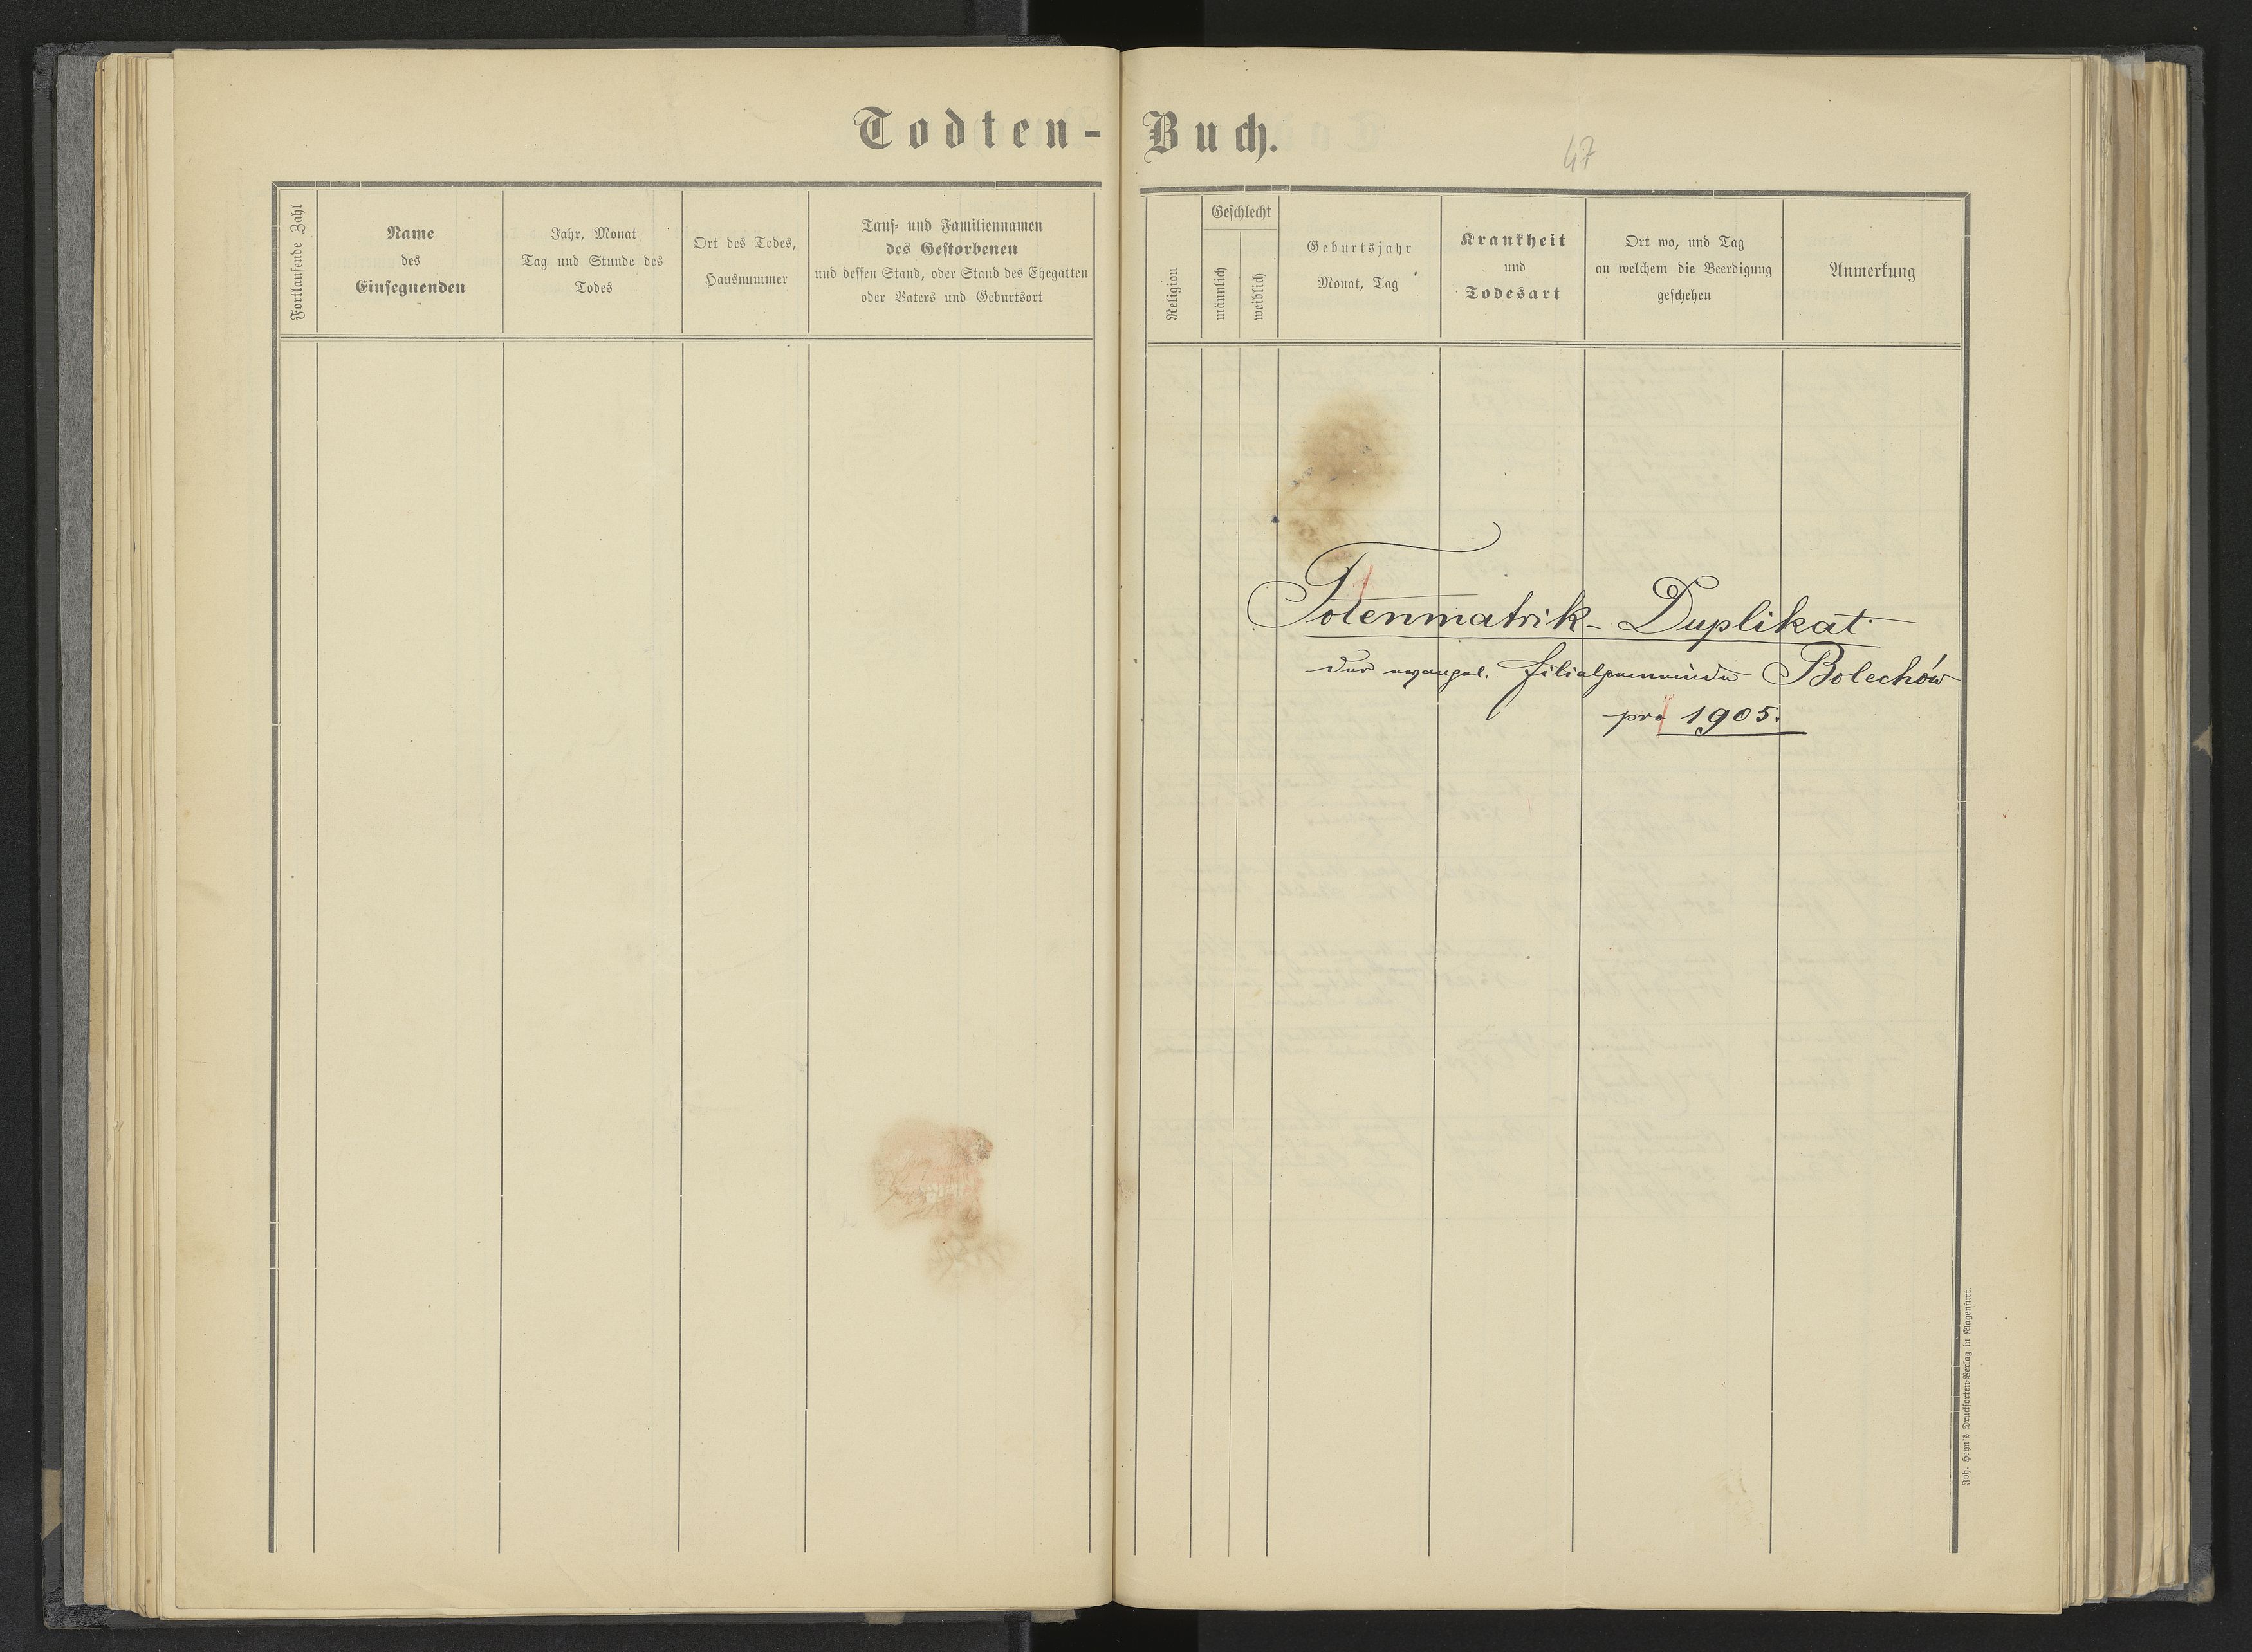 Todten-Buch.
47
Fortlaufende Zahl
Name
des
Einsegnenden
Jahr, Monat
Tag und Stunde des
Todes
Ort des Todes,
Hausnummer
Tauf- und Familiennamen
des Gestorbenen
und dessen Stand, oder Stand des Ehegatten
oder Vaters und Geburtsort
Religion
Geschlecht
männlich
weiblich
Geburtsjahr
Monat, Tag
Krankheit
und
Todesart
Ort wo, und Tag
an welchem die Beerdigung
geschehen
Anmerkung
Totenmatrik-Duplikat
der evangel. Filialgemeinde Bolechów
pro 1905.
Joh. Heyn's Drucksorten-Verlag in Klagenfurt.